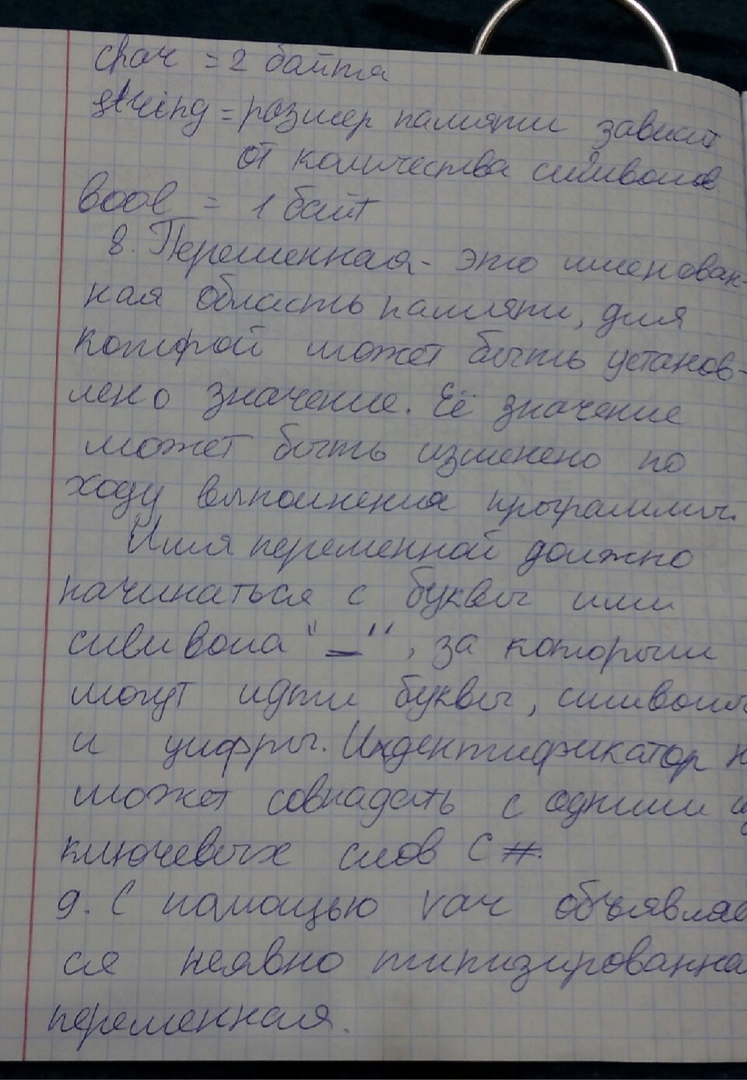 char = 2 байта
string = размер памяти зависит
от количества символов
bool = 1 байт
8. Переменная - это именован-
ная область памяти, для
которой может быть установ-
лено значение. Её значение
может быть изменено по
ходу выполнения программы.
Имя переменной должно
начинаться с буквы или
символа "_", за которым
могут идти буквы, символы
и цифры. Индентификатор н
может совпадать с одним и
ключевых слов C#.
9. С помощью var объявляе
ся неявно типизированна
переменная.